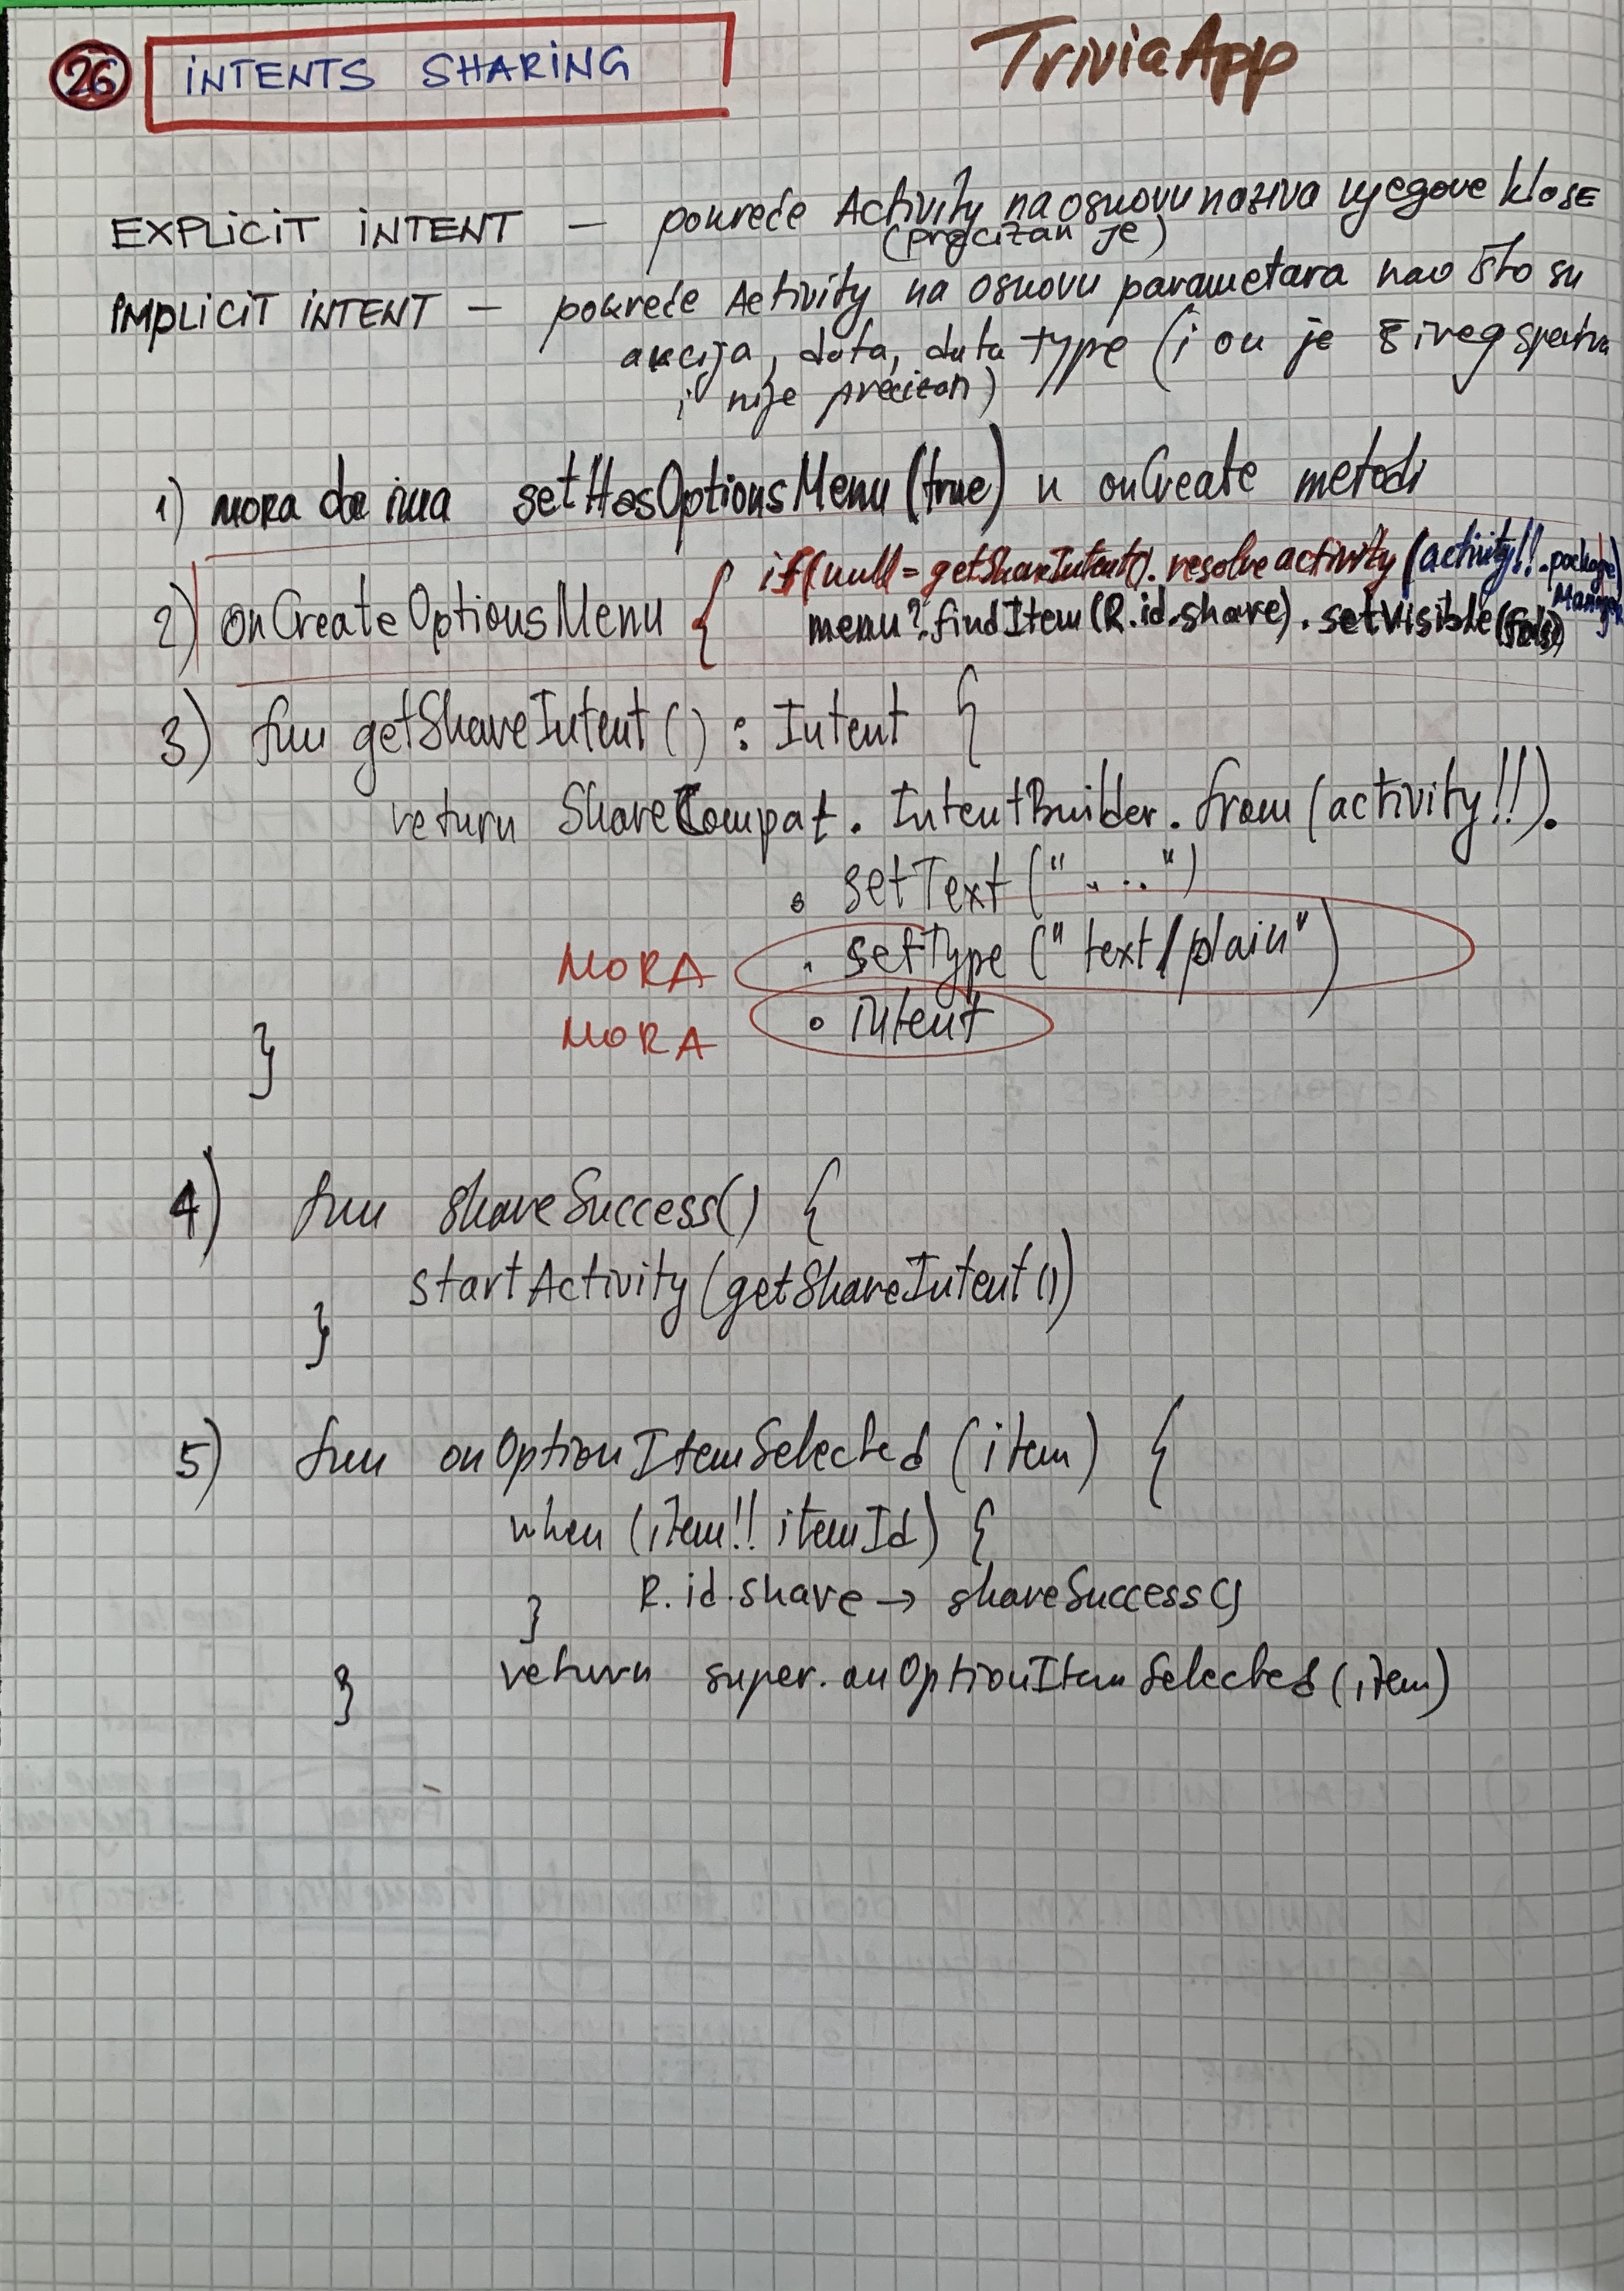 26 INTENTS SHARING
TriviaApp
EXPLICIT INTENT — pokreće Activity na osnovu naziva njegove klase
(precizan je)
IMPLICIT INTENT — pokreće Activity na osnovu parametara kao što su
akcija, data, data type (i on je šireg spektra
i nije precizan)
1) MORA da ima setHasOptionsMenu(true) u onCreate metodi
2) onCreateOptionsMenu { if(null = getShareIntent().resolveactivity(activity!!.package
Manager
menu?.findItem(R.id.share).setVisible(false)
3) fun getShareIntent() : Intent {
return ShareCompat.IntentBuilder.from(activity!!).
.setText("....")
MORA .setType("text/plain")
MORA .intent
}
4) fun shareSuccess() {
startActivity(getShareIntent())
}
5) fun onOptionItemSelected(item) {
when (item!! itemId) {
R.id.share → shareSuccess()
}
return super.onOptionItemSelected(item)
}